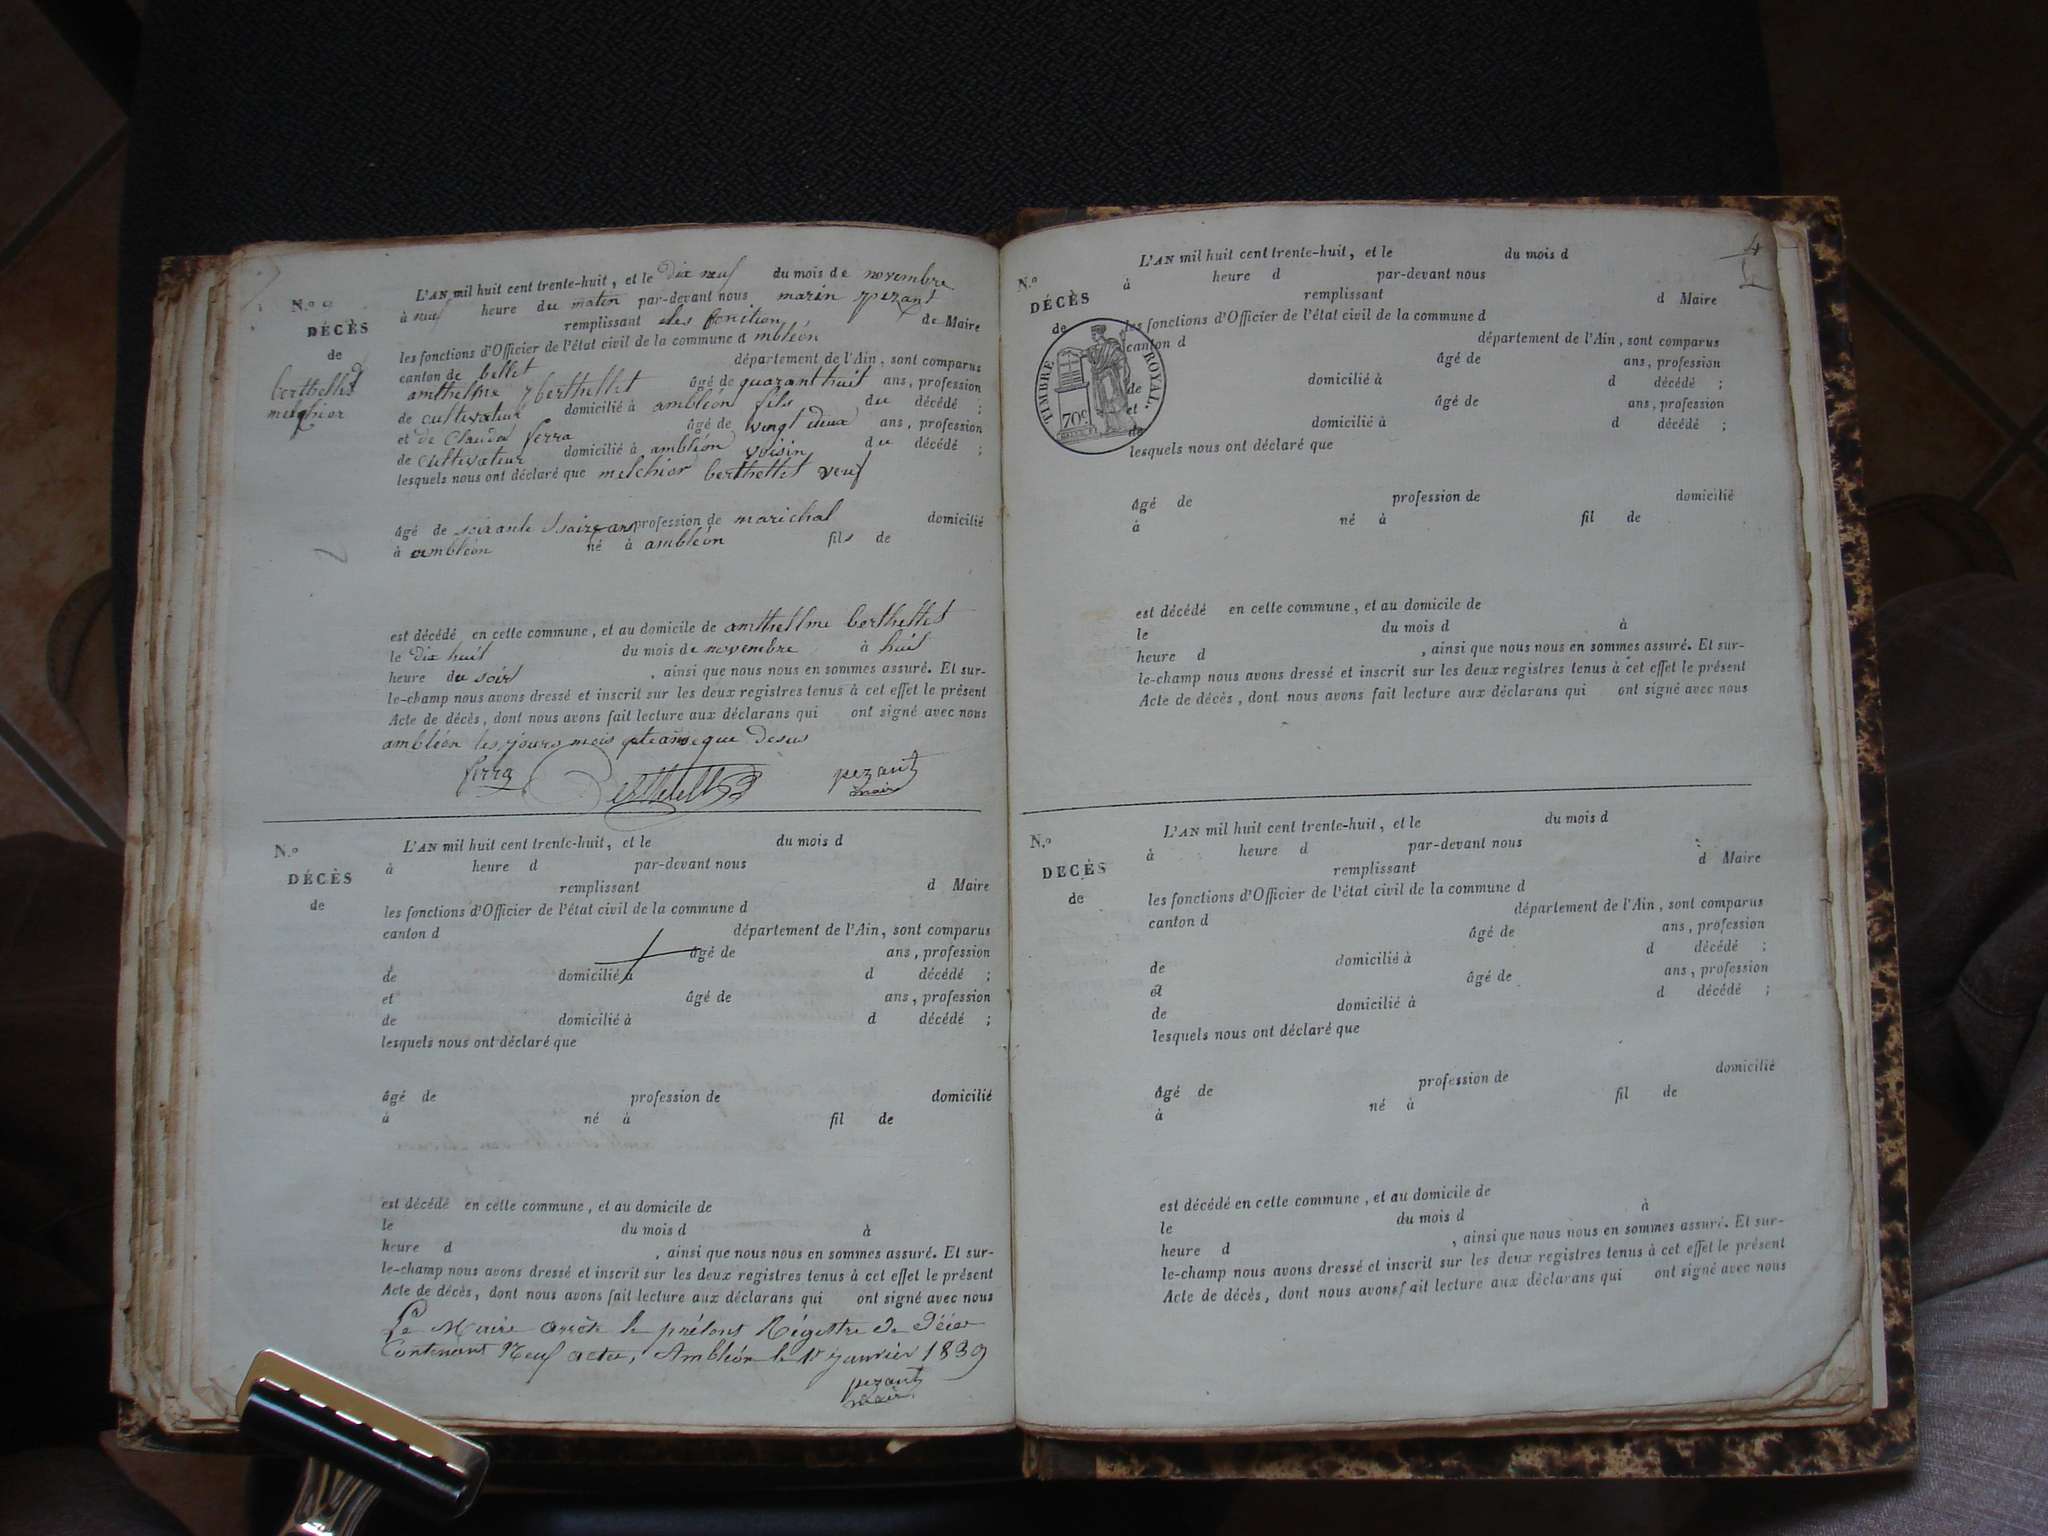 N.o 9
DÉCÈS
de
berthellet
melchior
L'AN mil huit cent trente-huit, et le dix neuf du mois de novembre
à neuf heure du matin par-devant nous marin pezant
remplissant les fonction de Maire
les fonctions d'Officier de l'état civil de la commune d mbléon
canton de bellet département de l'Ain, sont comparus
amthelme berthellet âgé de quarant huit ans, profession
de cultivateur domicilié à ambléon fils du décédé ;
et de Claude ferra âgé de vingt deux ans, profession
de cultivateur domicilié à ambléon voisin du décédé ;
lesquels nous ont déclaré que melchior berthellet veuf
âgé de soixante saize ans profession de marichal domicilié
à ambléon né à ambléon fils de
est décédé en cette commune, et au domicile de amthellme berthellet
le dix huit du mois de novembre à huit
heure du soir , ainsi que nous nous en sommes assuré. Et sur-
le-champ nous avons dressé et inscrit sur les deux registres tenus à cet effet le présent
Acte de décès, dont nous avons fait lecture aux déclarans qui ont signé avec nous
ambléon les jours mois et an que desus
ferra Berthelet pezant
mair
N.o
DÉCÈS
de
L'AN mil huit cent trente-huit, et le du mois d
à heure d par-devant nous
remplissant d Maire
les fonctions d'Officier de l'état civil de la commune d
canton d département de l'Ain, sont comparus
âgé de ans, profession
de domicilié à d décédé ;
et âgé de ans, profession
de domicilié à d décédé ;
lesquels nous ont déclaré que
âgé de profession de domicilié
à né à fil de
est décédé en cette commune, et au domicile de
le du mois d à
heure d , ainsi que nous nous en sommes assuré. Et sur-
le-champ nous avons dressé et inscrit sur les deux registres tenus à cet effet le présent
Acte de décès, dont nous avons fait lecture aux déclarans qui ont signé avec nous
Le Maire arrête le présent Régistre de Décès
Contenant Neuf actes, Ambléon le 1r janvier 1839
pezant
mair
4
N.o
DÉCÈS
de
TIMBRE ROYAL.
70c
L'AN mil huit cent trente-huit, et le du mois d
à heure d par-devant nous
remplissant d Maire
les fonctions d'Officier de l'état civil de la commune d
canton d département de l'Ain, sont comparus
âgé de ans, profession
de domicilié à d décédé ;
et âgé de ans, profession
de domicilié à d décédé ;
lesquels nous ont déclaré que
âgé de profession de domicilié
à né à fil de
est décédé en cette commune, et au domicile de
le du mois d à
heure d , ainsi que nous nous en sommes assuré. Et sur-
le-champ nous avons dressé et inscrit sur les deux registres tenus à cet effet le présent
Acte de décès, dont nous avons fait lecture aux déclarans qui ont signé avec nous
N.o
DÉCÈS
de
L'AN mil huit cent trente-huit, et le du mois d
à heure d par-devant nous
remplissant d Maire
les fonctions d'Officier de l'état civil de la commune d
canton d département de l'Ain, sont comparus
âgé de ans, profession
de domicilié à d décédé ;
et âgé de ans, profession
de domicilié à d décédé ;
lesquels nous ont déclaré que
âgé de profession de domicilié
à né à fil de
est décédé en cette commune, et au domicile de
le du mois d à
heure d , ainsi que nous nous en sommes assuré. Et sur-
le-champ nous avons dressé et inscrit sur les deux registres tenus à cet effet le présent
Acte de décès, dont nous avons fait lecture aux déclarans qui ont signé avec nous